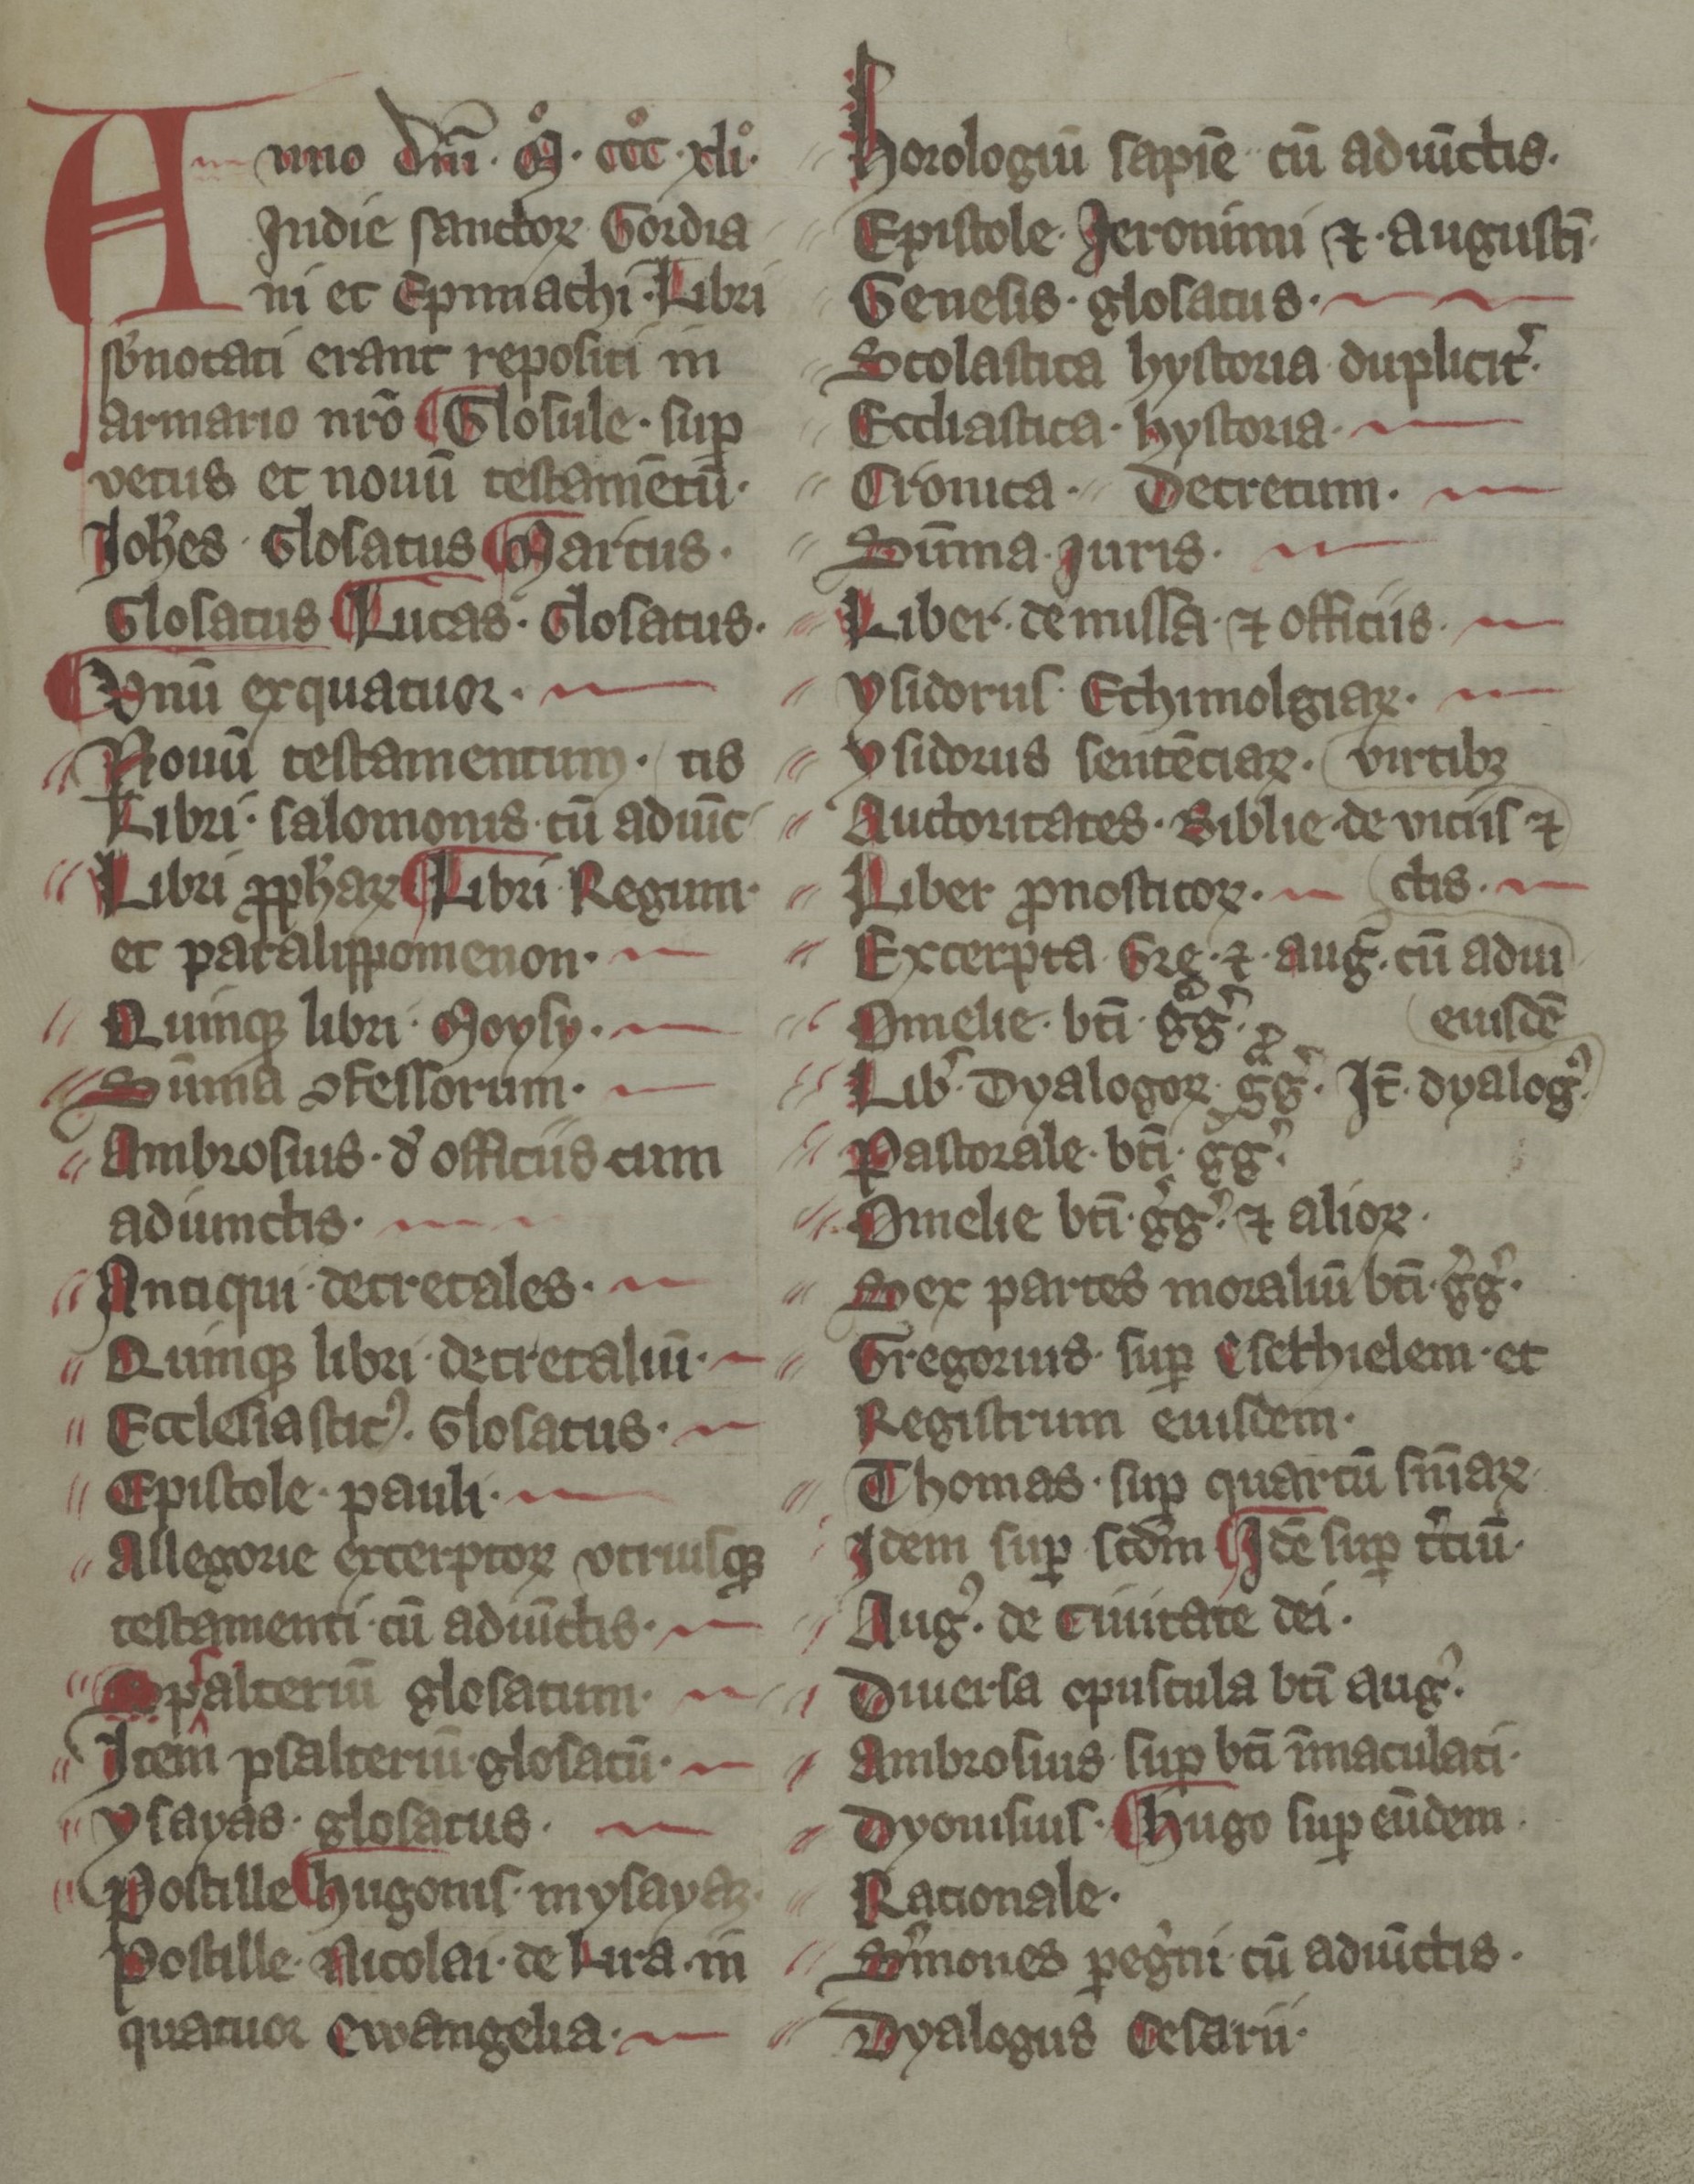 Anno dm̄. Mͦ. cccͦ xliͦ.
Indie sanctoꝝ Gordia
ni et Epimachi. Libri
sb̓notati erant repositi in
armario nrō Glosule. suꝑ
vetus et nouū testamētū.
Joh̓es Glosatus Marcus.
Glosatus Lucas. Glosatus.
Vnū exquatuor.
Nouū testamentum.
Libri. salomonis cū adiūc tis
Libri ꝓph̓aꝝ Libri Regum.
et paralippomenon.
Quinqꝫ libri. Moysy.
Sūma ꝯfessorum.
Ambrosius. d̓ officiis cum
adiunctis.
Antiqui decretales.
Quinqꝫ libri decretaliū.
Ecclesiastic᾽. Glosatus.
Epistole. pauli.
Allegorie excerptoꝝ vtriusqꝫ
testamenti cū adiūctis.
psalteriū glosatum.
Item psalteriū glosatū.
ysayas. glosatus.
Postille hugonis. in ysayaꝫ.
Postille. Nicolai. de Lira. in
quatuor ewangelia.
horologiū sapiē cū adiūctis.
Epistole. Jeronimi ⁊. augustī.
Genesis. glosatus.
Scolastica hystoria duplicit᾽.
Eccliastica. hystoria.
Cronica. Decretum.
Sūma. juris.
Liber. de missa. ⁊ officiis.
ysidorus. Ethimolgiaꝝ.
ysidorus sentēciaꝝ.
Auctoritates. Biblie. de viciis ⁊ virtibꝫ
Liber ꝓnosticoꝝ.
Excerpta Greg. ⁊. aug᾽. cū adiu ctis.
Omelie. bt̄i. g̓g᾽.
Lib᾽. Dyalogoꝝ. g̓g᾽. It̄. dyalog᾽. eiusdē
Pastorale. bt̄i. g̓g᾽.
Omelie bt̄i. g̓g᾽. ⁊ alioꝝ.
Sex partes moraliū bt̄i. g̓g᾽.
Gregorius. suꝑ Esethielem. et
Registrum eiusdem.
Thomas. suꝑ quartū sn̄iaꝝ
Idem suꝑ scd̄m Idē suꝑ t̓ciū.
Aug᾽. de Ciuitate dei.
Diuersa opuscula bt̄i aug᾽.
Ambrosius. suꝑ bt̄i īmaculati.
Dyonisius. Hugo suꝑ eūdem.
Racionale.
S̓mones ꝑeg̓ni. cū adiūctis.
Dyalogus Cesarii.